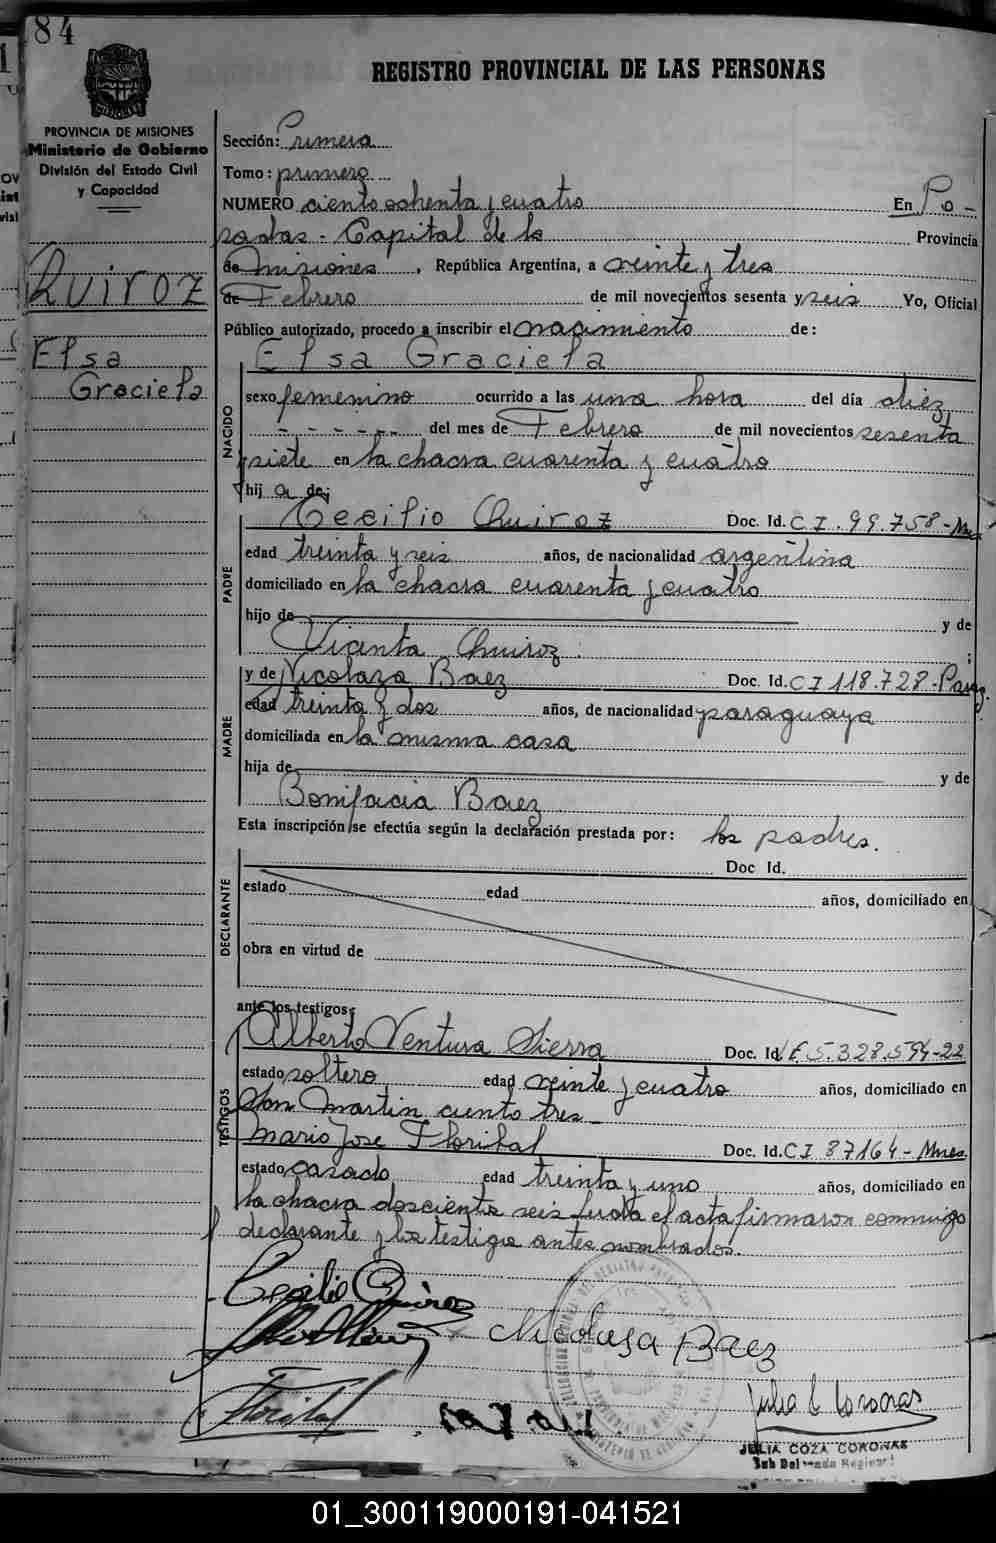 84
REGISTRO PROVINCIAL DE LAS PERSONAS
PROVINCIA DE MISIONES
Ministerio de Gobierno
División del Estado Civil
y Capacidad
Quiroz
Elsa
Graciela
Sección: Primera
Tomo: primero
NUMERO ciento ochenta y cuatro En Po-
sadas - Capital de la Provincia
de Misiones, República Argentina, a veinte y tres
de Febrero de mil novecientos sesenta y seis Yo, Oficial
Público autorizado, procedo a inscribir el nacimiento de:
Elsa Graciela
NACIDO
sexo femenino ocurrido a las una hora del día diez
- - - - - - del mes de Febrero de mil novecientos sesenta
y siete en la chacra cuarenta y cuatro
hija de:
PADRE
Cecilio Quiroz Doc. Id. C I. 99.758-Mnes
edad treinta y seis años, de nacionalidad argentina
domiciliado en la chacra cuarenta y cuatro
hijo de y de
Vicenta Quiroz ;
MADRE
y de Nicolaza Baez Doc. Id. C I 118.728-Parag.
edad treinta y dos años, de nacionalidad paraguaya
domiciliada en la misma casa
hija de y de
Bonifacia Baez
Esta inscripción se efectúa según la declaración prestada por: los padres.
DECLARANTE
Doc Id.
estado edad años, domiciliado en
obra en virtud de
ante los testigos:
TESTIGOS
Alberto Ventura Sierra Doc. Id. 5.328.594-22
estado soltero edad veinte y cuatro años, domiciliado en
San Martin ciento tres-
Mario Jose Floribal Doc. Id. C I 87164-Mnes.
estado casado edad treinta y uno años, domiciliado en
la chacra doscientos seis leida el acta firmaron conmigo
declarante y los testigos antes nombrados.
Cecilio Quiroz
Nicolasa Baez
Julia C Coronas
JULIA COZA CORONAS
Sub Delegada Regional
01_300119000191-041521